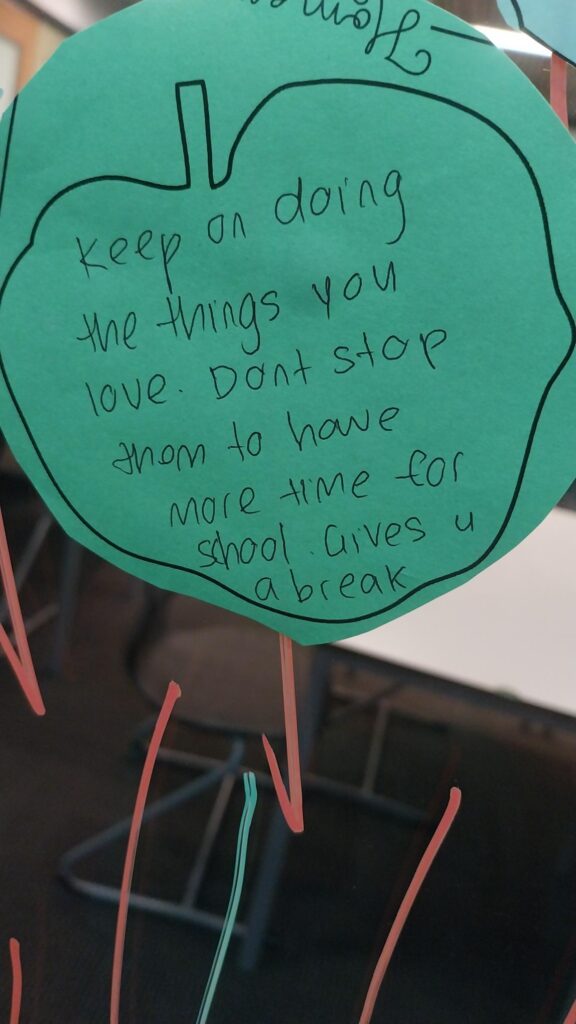 Keep on doing
the things you
love. Dont stop
them to have
more time for
school. Gives u
a break